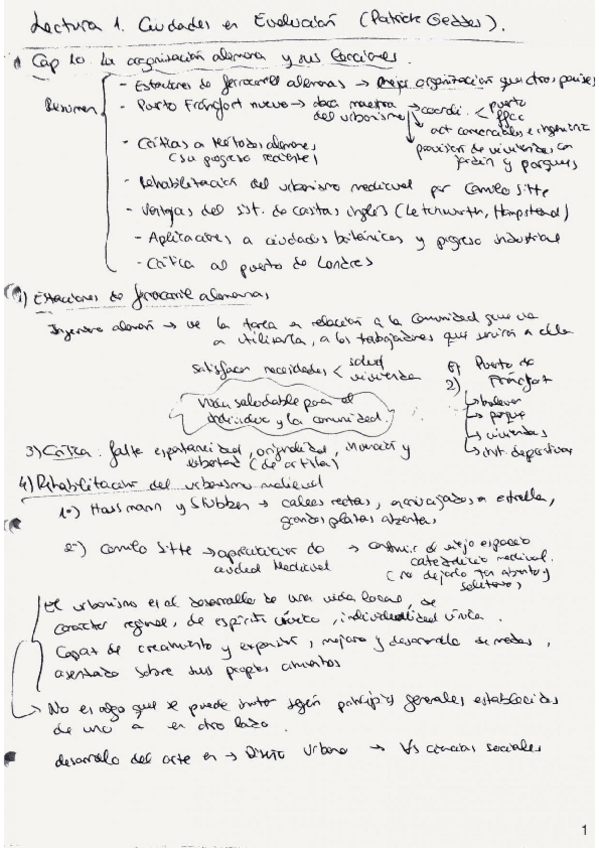 Lectura 1. Ciudades en Evolución (Patrick Geddes).
Cap 10. La organización alemana y sus lecciones.
Resumen
- Estaciones de ferrocarril alemanas → mejor organización que otros países
- Puerto Fráncfort nuevo → obra maestra del urbanismo → coordi. < puerto ffcc
act comerciales e ingenieria
provisión de viviendas con jardín y parques
- Críticas a métodos alemanes (su progreso reciente)
- Rehabilitación del urbanismo medieval por Camilo Sitte
- Ventajas del sist. de casitas inglés (Letchworth, Hampstead)
- Aplicaciones a ciudades británicas y progreso industrial
- Crítica al puerto de Londres
1) Estaciones de ferrocarril alemanas
Ingeniero alemán → ve la tarea en relación a la comunidad que va
a utilizarla, a los trabajadores que servirá a ella
satisfacer necesidades < salud vivienda
saludable para el
individuo y la comunidad
2) Puerto de Fráncfort
→ parque
→ viviendas
→ inst. deportivas
3) Crítica: falta espontaneidad, originalidad, y
libertad (de artista)
4) Rehabilitación del urbanismo medieval
1º) Haussmann y Stubben → calles rectas, en estrella,
grandes plazas abiertas
2º) Camilo Sitte → apreciación de ciudad Medieval → construir el viejo espacio
catedralicio medieval.
(no dejarlo tan abierto y
solitario)
El urbanismo es el desarrollo de una vida local, de
carácter regional, de espíritu cívico, individualidad cívica.
Capaz de crecimiento y expansión, mejora y desarrollo de modos,
asentado sobre sus propios cimientos
→ No es algo que se puede según principios generales establecidos
de uno a en otro lado.
desarrollo del arte en → Diseño Urbano → Vs ciencias sociales
1